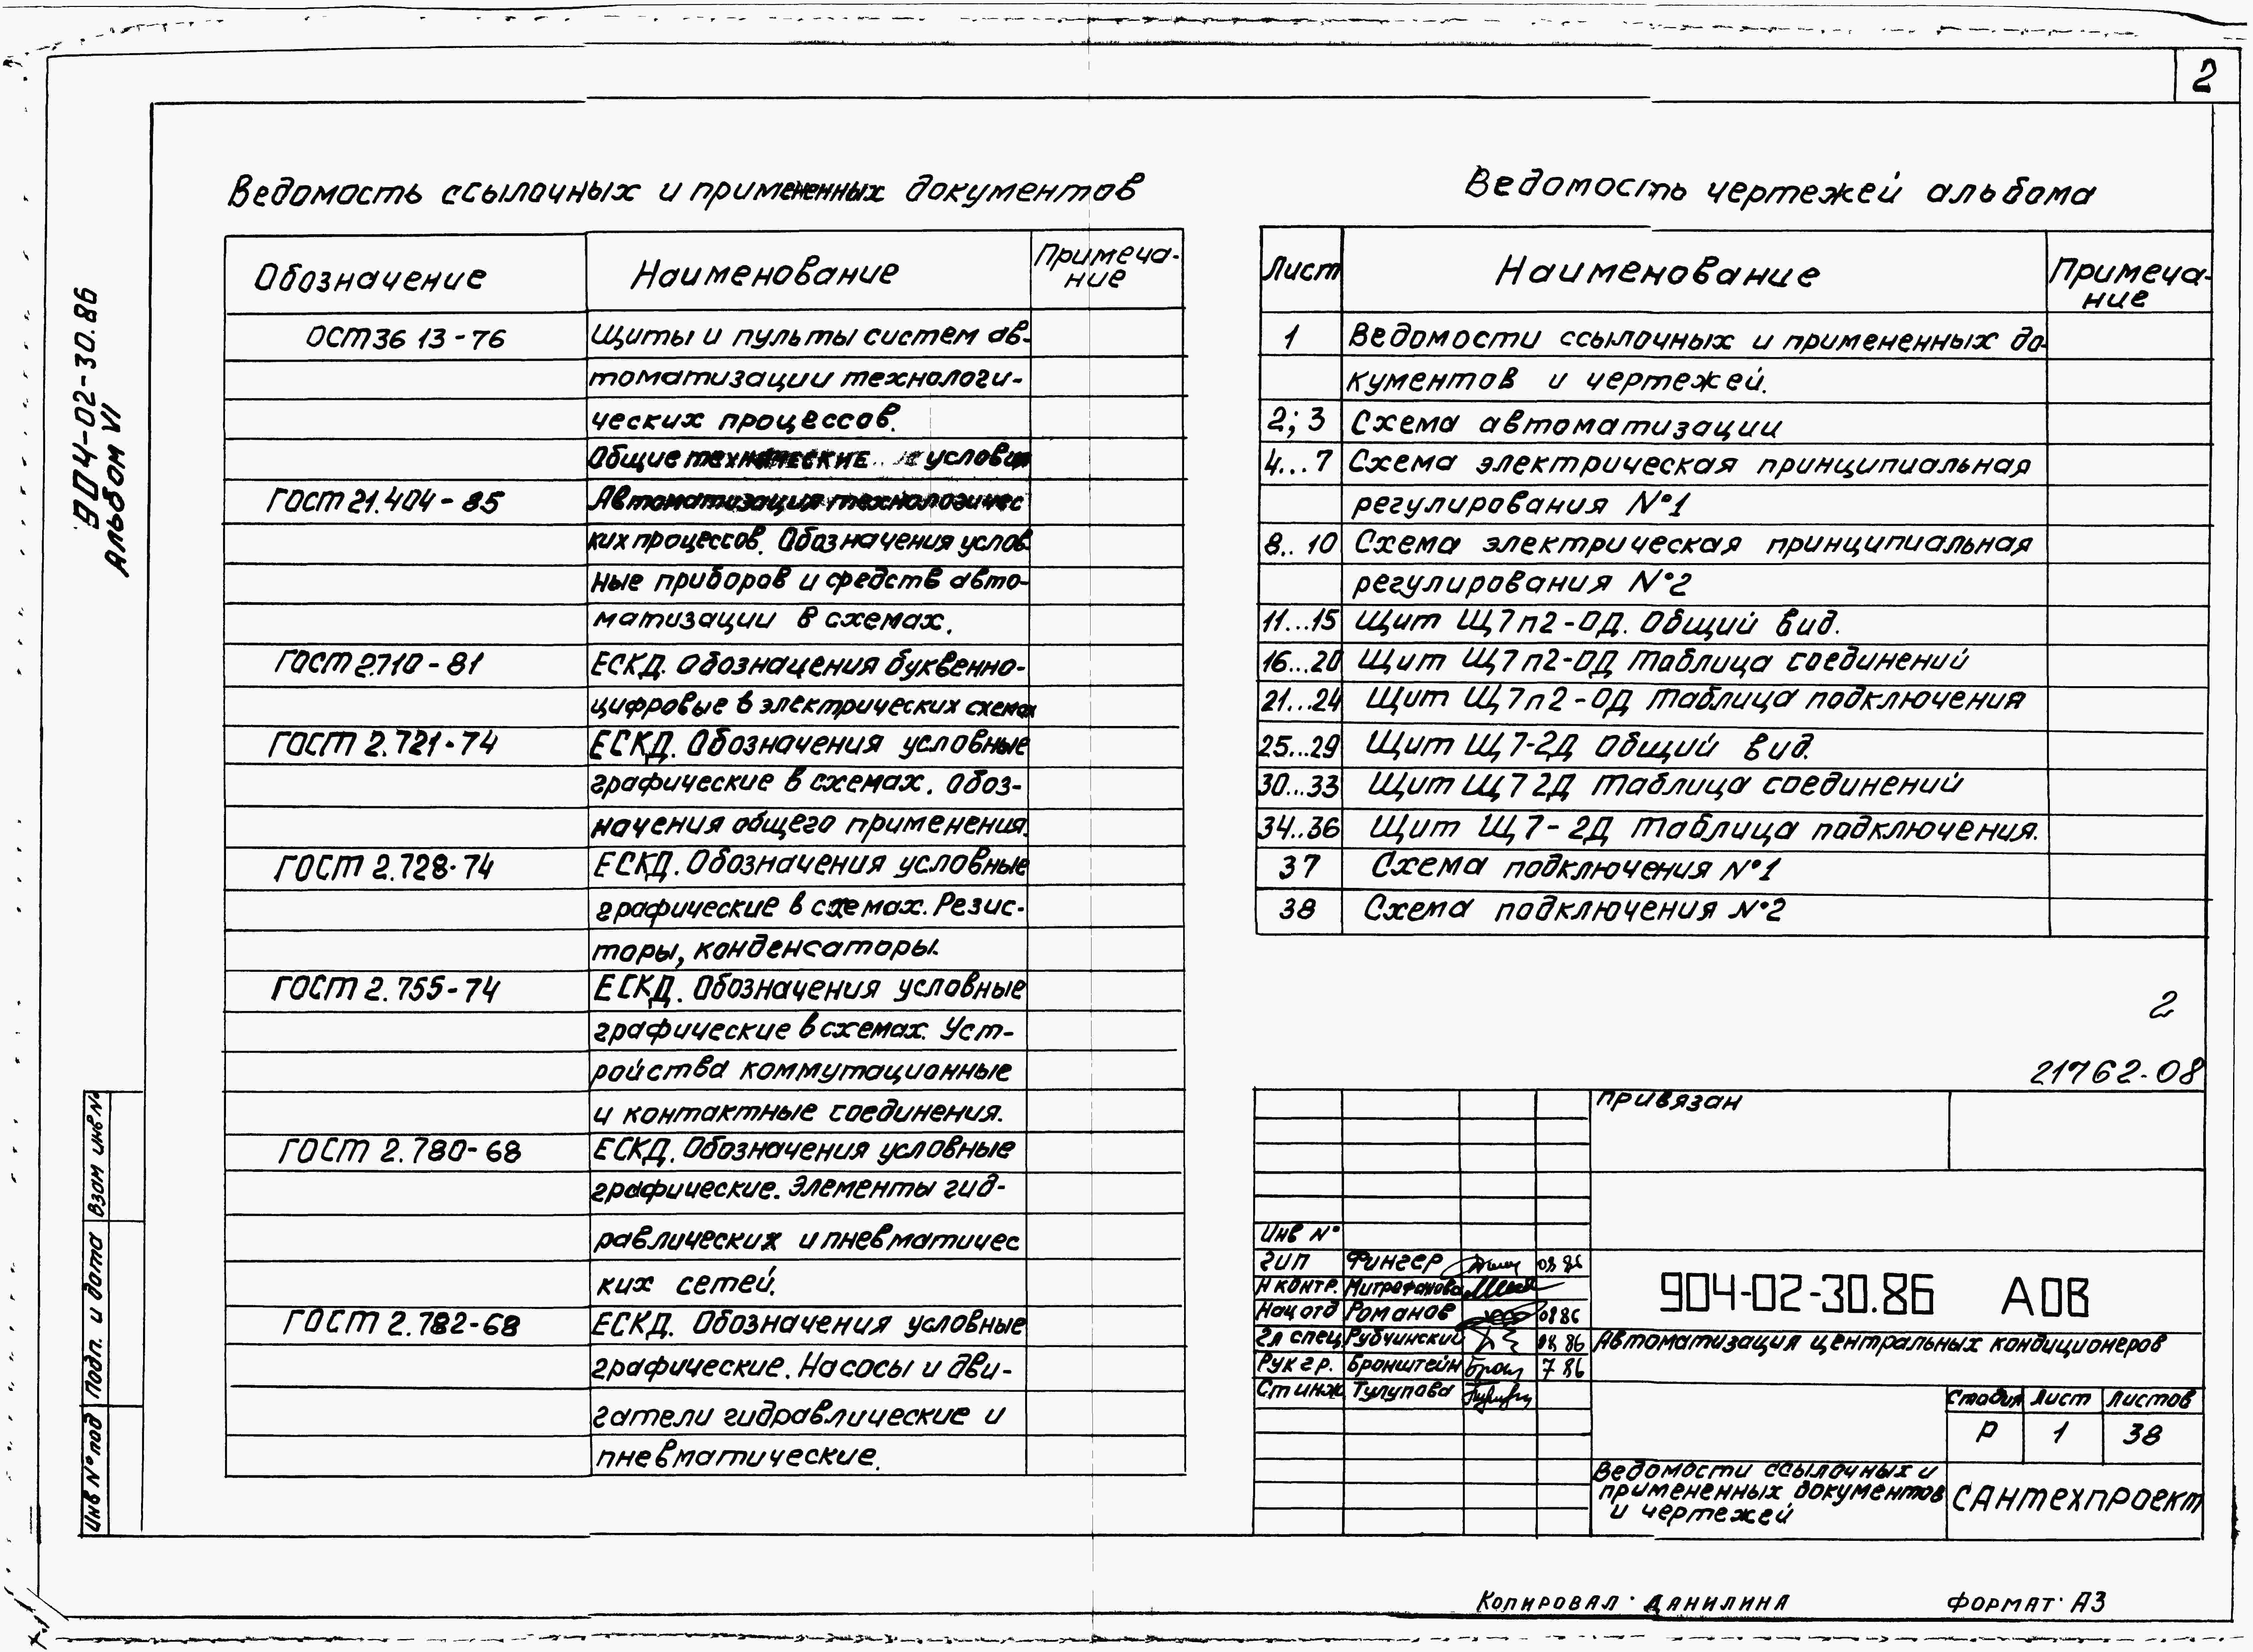 2
904-02-30.86
Альбом VI
Ведомость ссылочных и примененных документов
Обозначение Наименование Примеча-
ние
ОСТ36 13-76 Щиты и пульты систем ав-
томатизации технологи-
ческих процессов.
Общие технические условия
ГОСТ 21.404-85 Автоматизация технологичес
ких процессов. Обозначения услов
ные приборов и средств авто-
матизации в схемах.
ГОСТ 2710-81 ЕСКД. Обозначения буквенно-
цифровые в электрических схемах
ГОСТ 2.721-74 ЕСКД. Обозначения условные
графические в схемах. Обоз-
начения общего применения.
ГОСТ 2.728-74 ЕСКД. Обозначения условные
графические в схемах. Резис-
торы, конденсаторы.
ГОСТ 2.755-74 ЕСКД. Обозначения условные
графические в схемах. Уст-
ройства коммутационные
и контактные соединения.
ГОСТ 2.780-68 ЕСКД. Обозначения условные
графические. Элементы гид-
равлических и пневматичес
ких сетей.
ГОСТ 2.782-68 ЕСКД. Обозначения условные
графические. Насосы и дви-
гатели гидравлические и
пневматические.
Ведомость чертежей альбома
Лист Наименование Примеча-
ние
1 Ведомости ссылочных и примененных до-
кументов и чертежей.
2; 3 Схема автоматизации
4...7 Схема электрическая принципиальная
регулирования №1
8..10 Схема электрическая принципиальная
регулирования №2
11...15 Щит Щ7п2-ОД. Общий вид.
16...20 Щит Щ7п2-ОД Таблица соединений
21...24 Щит Щ7п2-ОД Таблица подключения
25...29 Щит Щ7-2Д Общий вид.
30...33 Щит Щ7 2Д Таблица соединений
34..36 Щит Щ7-2Д Таблица подключения.
37 Схема подключения №1
38 Схема подключения №2
2
21762-08
Привязан
Инв №
ГИП Фингер 08 86
Н контр. Митрофанова
Нач отд Романов 08 86
Гл спец Рубчинский 08 86
Рук гр. Бронштейн 7 86
Ст инж Тулупова
904-02-30.86 АОВ
Автоматизация центральных кондиционеров
Стадия Лист Листов
Р 1 38
Ведомости ссылочных и
примененных документов
и чертежей
Сантехпроект
Взам инв №
Подп. и дата
Инв № под
Копировал Данилина Формат А3